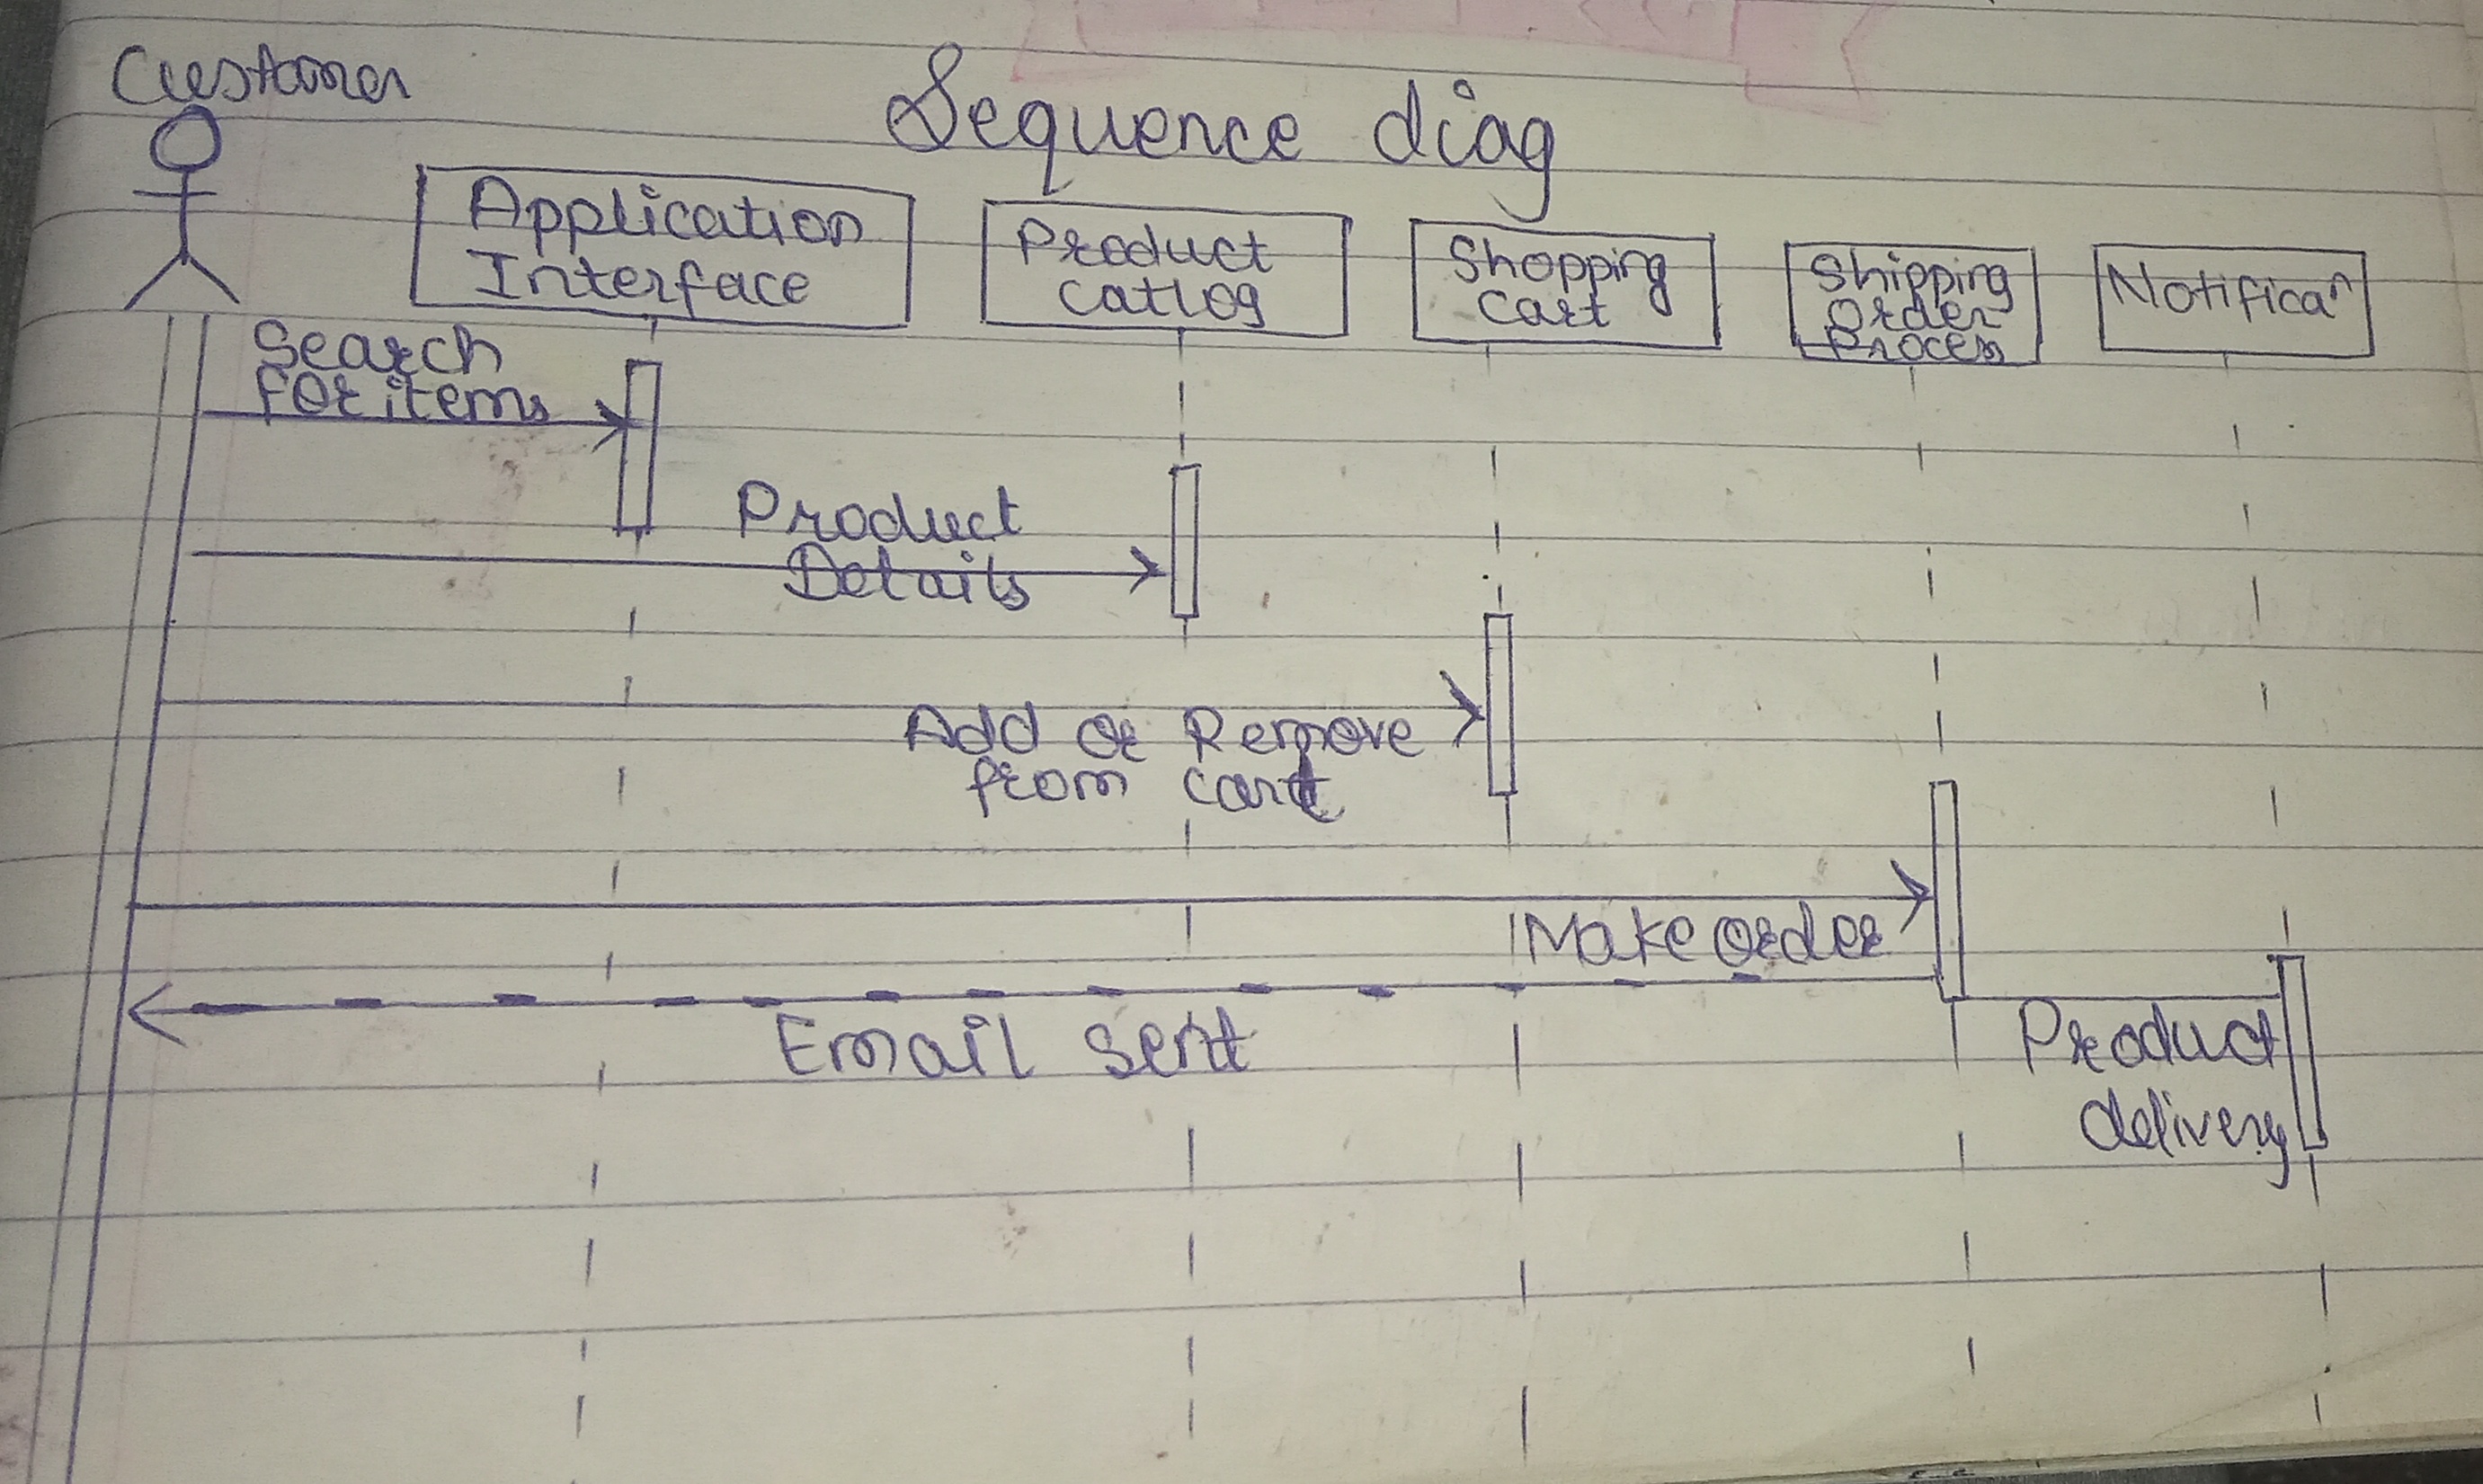 Customer
Sequence diag
Application
Interface
Product
Catlog
Shopping
Cart
Shipping
Order
Process
Search
for items
Product
Details
Add or Remove
from cart
Make order
Email sent
Product
delivery